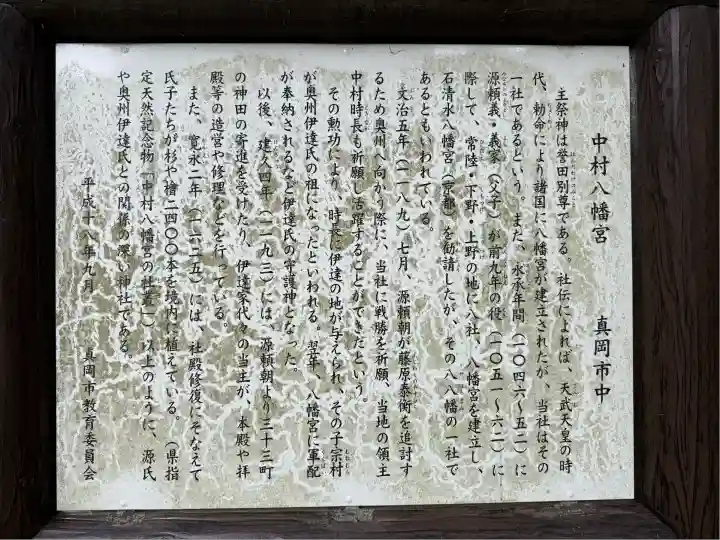 中村八幡宮　　　真岡市中
主祭神は誉田別尊である。社伝によれば、天武天皇の時
代、勅命により諸国に八幡宮が建立されたが、当社はその
一社であるという。また、永承年間（一〇四六～五二）に
源頼義・義家（父子）が前九年の役（一〇五一～六二）に
際して、常陸・下野・上野の地に八社、八幡宮を建立し、
石清水八幡宮（京都）を勧請したが、その八八幡の一社で
あるともいわれている。
文治五年（一一八九）七月、源頼朝が藤原泰衡を追討す
るため奥州へ向かう際に、当社に戦勝を祈願、当地の領主
中村時長も祈願し活躍することができたという。
その勲功により、時長に伊達の地が与えられ、その子宗村
が奥州伊達氏の祖になったといわれる。翌年、八幡宮に軍配
が奉納されるなど伊達氏の守護神となった。
以後、建久四年（一一九三）には、源頼朝より三十三町
の神田の寄進を受けたり、伊達家代々の当主が、本殿や拝
殿等の造営や修理などを行っている。
また、寛永二年（一六二五）には、社殿修復にそなえて
氏子たちが杉や檜二四〇〇本を境内に植えている。（県指
定天然記念物「中村八幡宮の社叢」）以上のように、源氏
や奥州伊達氏との関係の深い神社である。
平成十八年九月　　　真岡市教育委員会